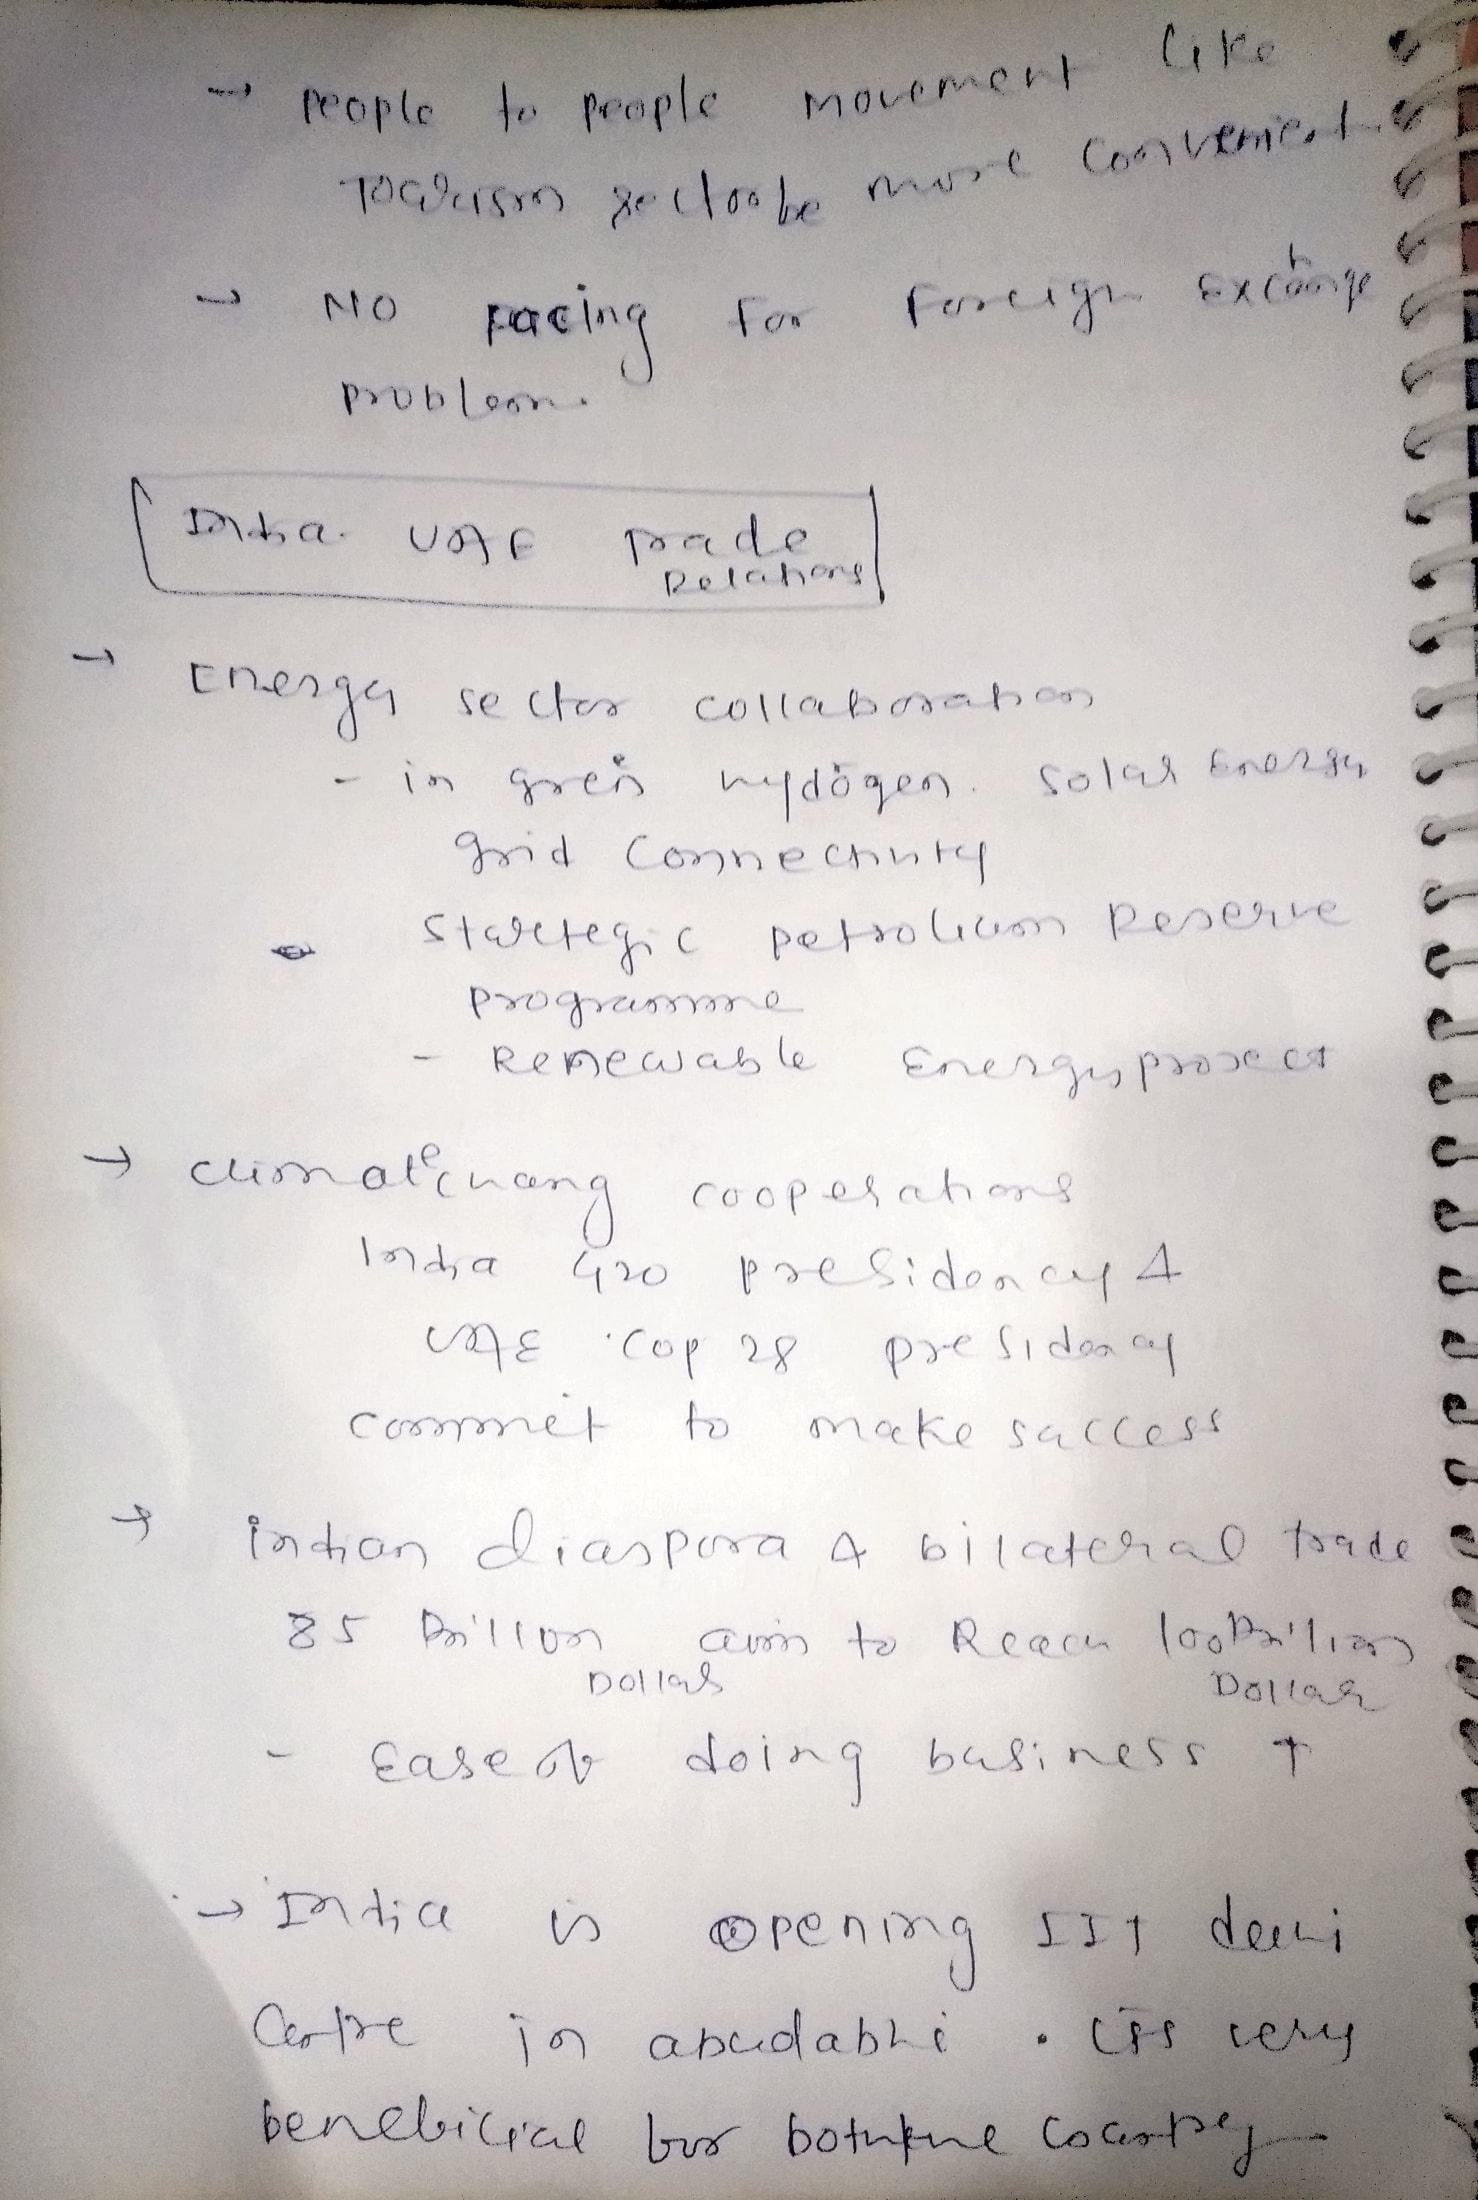 → People to people movement like
Tourism sector be more convenient
→ No facing for foreign exchange
problem.
India UAE Trade
Relations
→ Energy sector collaboration
- in green hydogen. Solar Energy
grid connectivity
Startegic petrolium Reserve
programme
- Renewable Energy project
→ climate chang cooperations
India G20 presidency &
UAE Cop 28 presidency
commet to make success
→ indian diaspora & bilateral trade
85 Billion aim to Reach 100 Billion
Dollar Dollar
- Ease of doing business ↑
→ India is opening IIT delhi
Centre in abudabhi. its very
beneficial for both the country